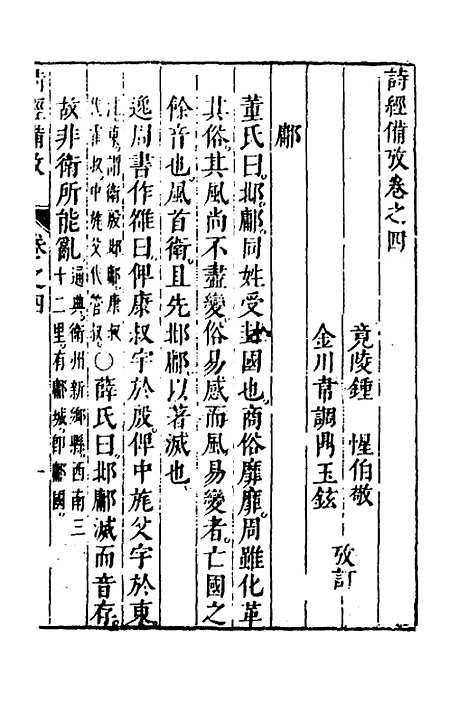 詩經備攷卷之四
竟陵鍾惺伯敬
金川韋調鼎玉鉉
攷訂
鄘
董氏曰邶鄘同姓受封國也商俗靡靡周雖化革
其俗其風尚不盡變俗易感而風易變者亡國之
餘音也風首衛且先邶鄘以著滅也
逸周書作雒曰俾康叔宇於殷俾中旄父宇於東
注東謂衛殷邶鄘康叔
代霍叔中旄父代管叔〇薛氏曰邶鄘滅而音存
故非衛所能亂通典衛州新鄉縣西南三
十二里有鄘城即鄘國
詩經備攷
卷之四
一